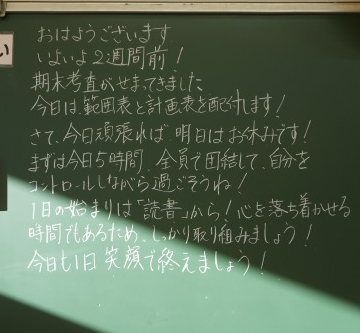 おはようございます
いよいよ2週間前！
期末考査がせまってきました
今日は、範囲表と計画表を配られます！
さて、今日頑張れば、明日はお休みです！
まずは今日5時間、全員で団結して、自分を
コントロールしながら過ごそうね！
1日の始まりは「読書」から！心を落ち着かせる
時間でもあるため、しっかり取り組みましょう！
今日も1日笑顔で終えましょう！
い